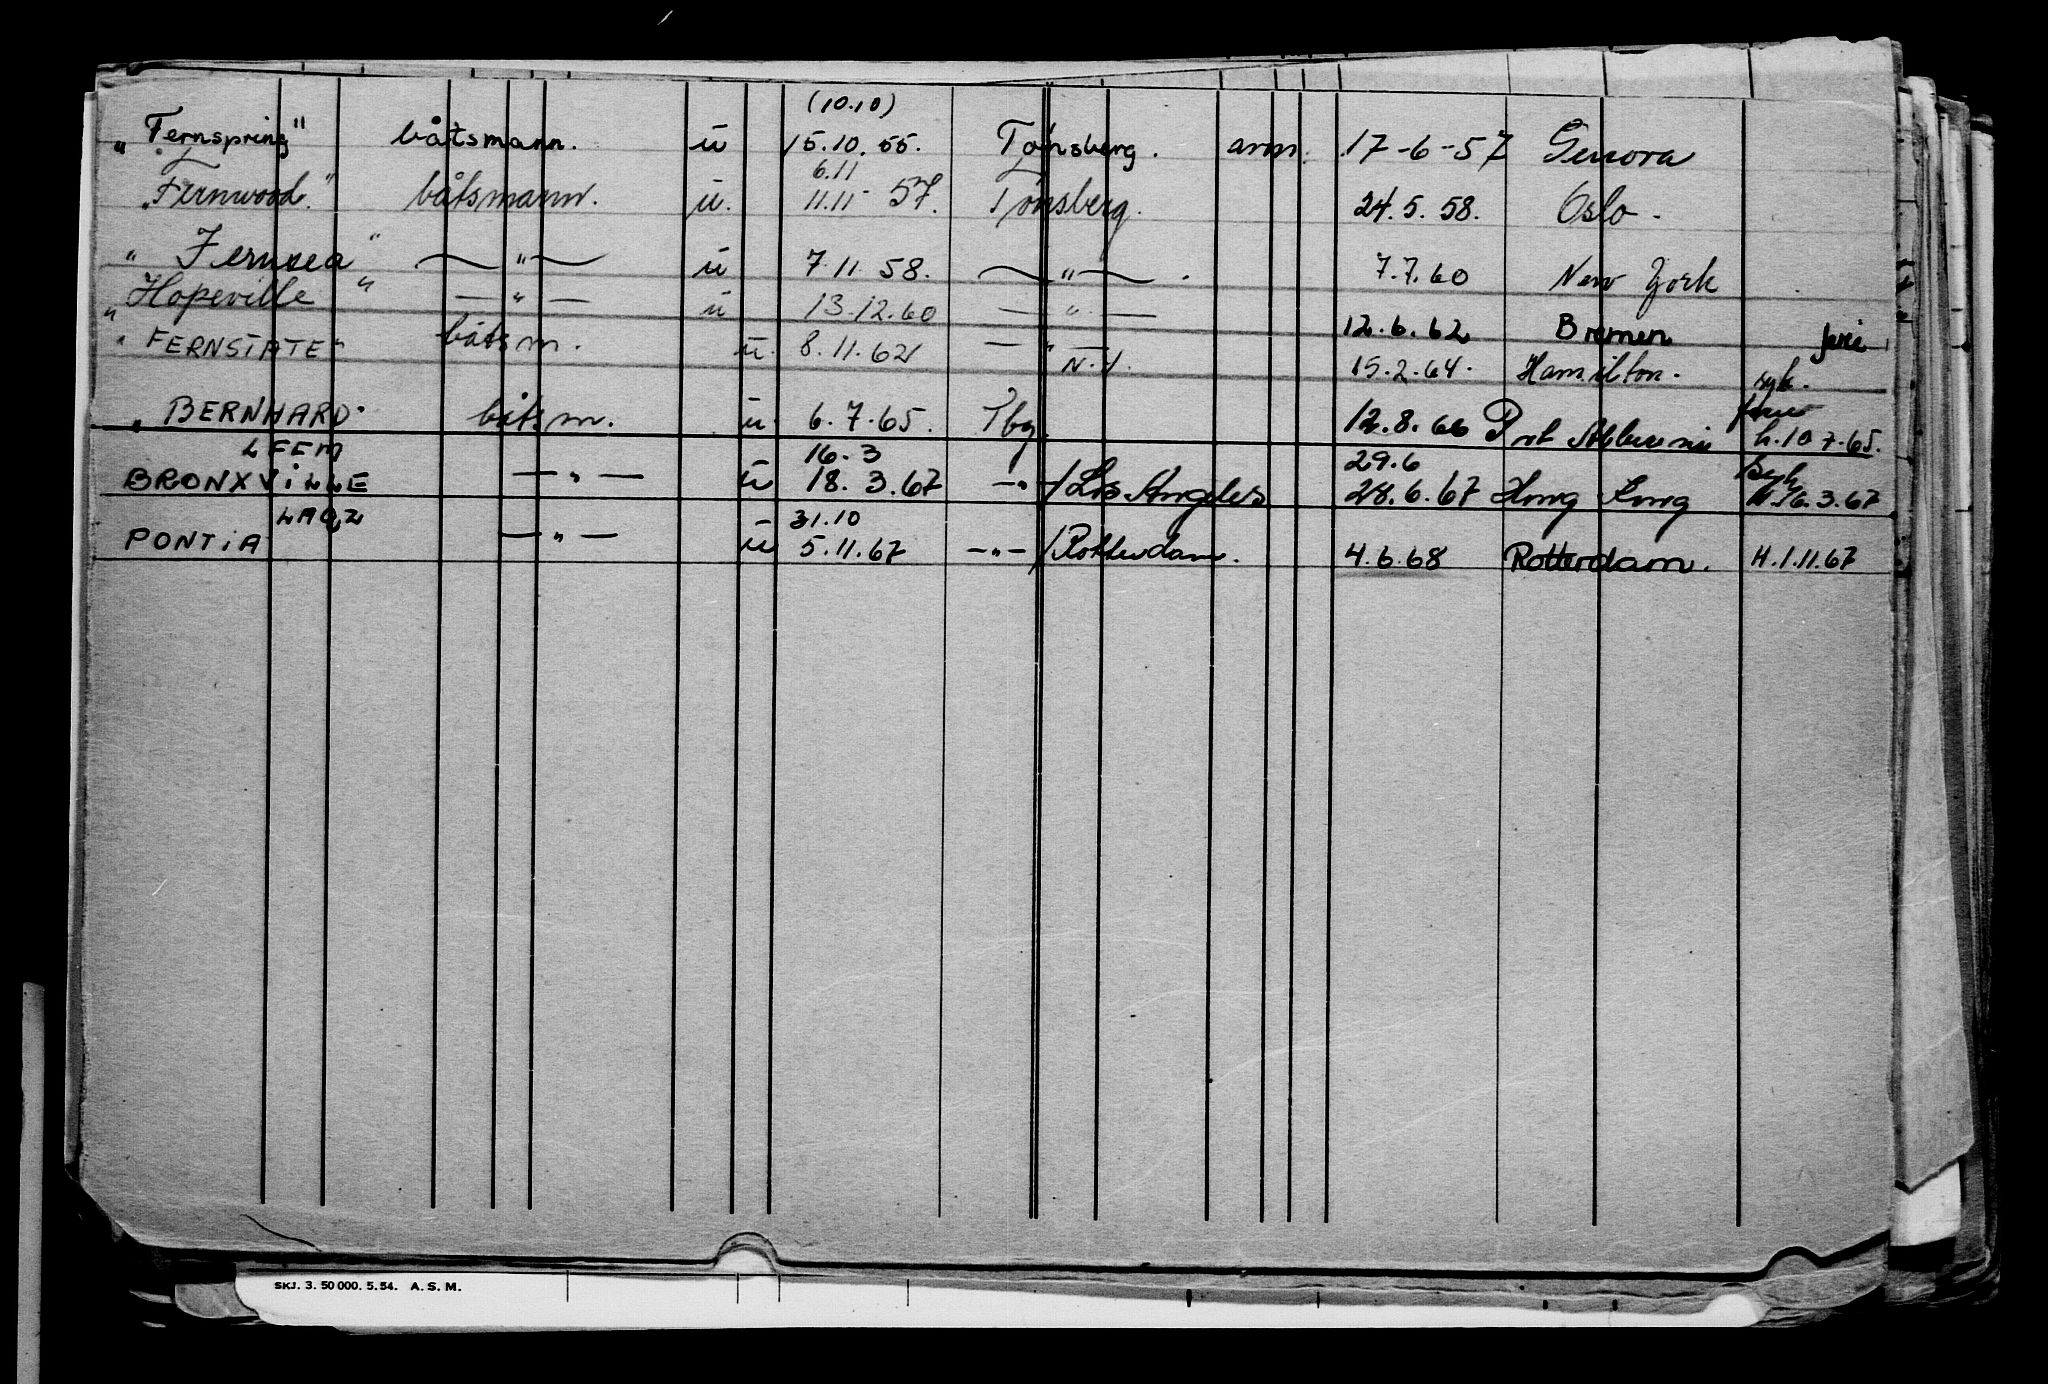 (10.10)
„Fernspring" båtsmann. u 15.10.55. Tønsberg. 17-6-57 Genova
6.11
„Fernwood." båtsmann. u. 11.11 57. Tønsberg. 24.5.58. Oslo.
„Fernsea" — " — u 7.11.58. — " — . 7.7.60 New York
„Hopeville" — " — u 13.12.60 — " — 12.6.62 Bremen ferie
„FERNSTATE" båtsm. u. 8.11.62 — " — 15.2.64. Hamilton. syk.
N.Y.
„BERNHARD båtsm. u. 6.7.65. Tbg. 12.8.66 h.10.7.65.
LFEM 16.3 29.6 Syk
BRONXVILLE — " — u 18.3.67 — " — /Los Angeles 28.6.67 Hong Kong H.16.3.67
LAQZ 31.10
PONTIA — " — u 5.11.67 — " — /Rotterdam. 4.6.68 Rotterdam. H.1.11.67
SKJ. 3. 50 000. 5. 54. A. S. M.